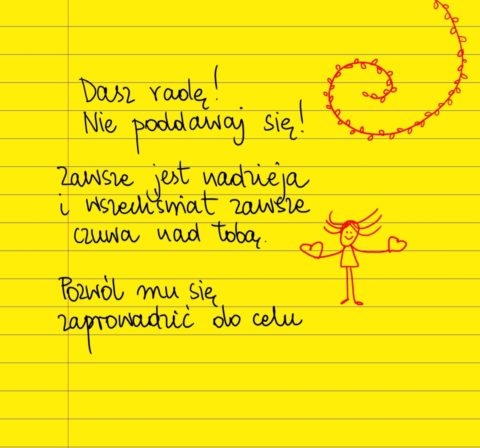 Dasz radę!
Nie poddawaj się!
Zawsze jest nadzieja
i wszechświat zawsze
czuwa nad tobą.
Pozwól mu się
zaprowadzić do celu